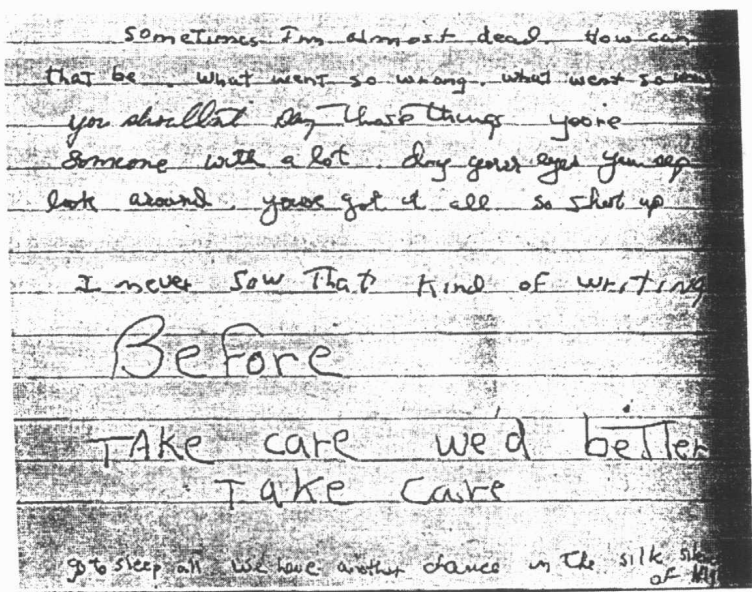 Sometimes I'm almost dead. How can
that be. what went so wrong. what went so
you shouldn't say those things you're
someone with a lot. dry your eyes
look around. youve got it all so shut up
I never sow That kind of writing
Before
TAke care we'd better
Take Care
go to sleep all we have another chance in The silk
of